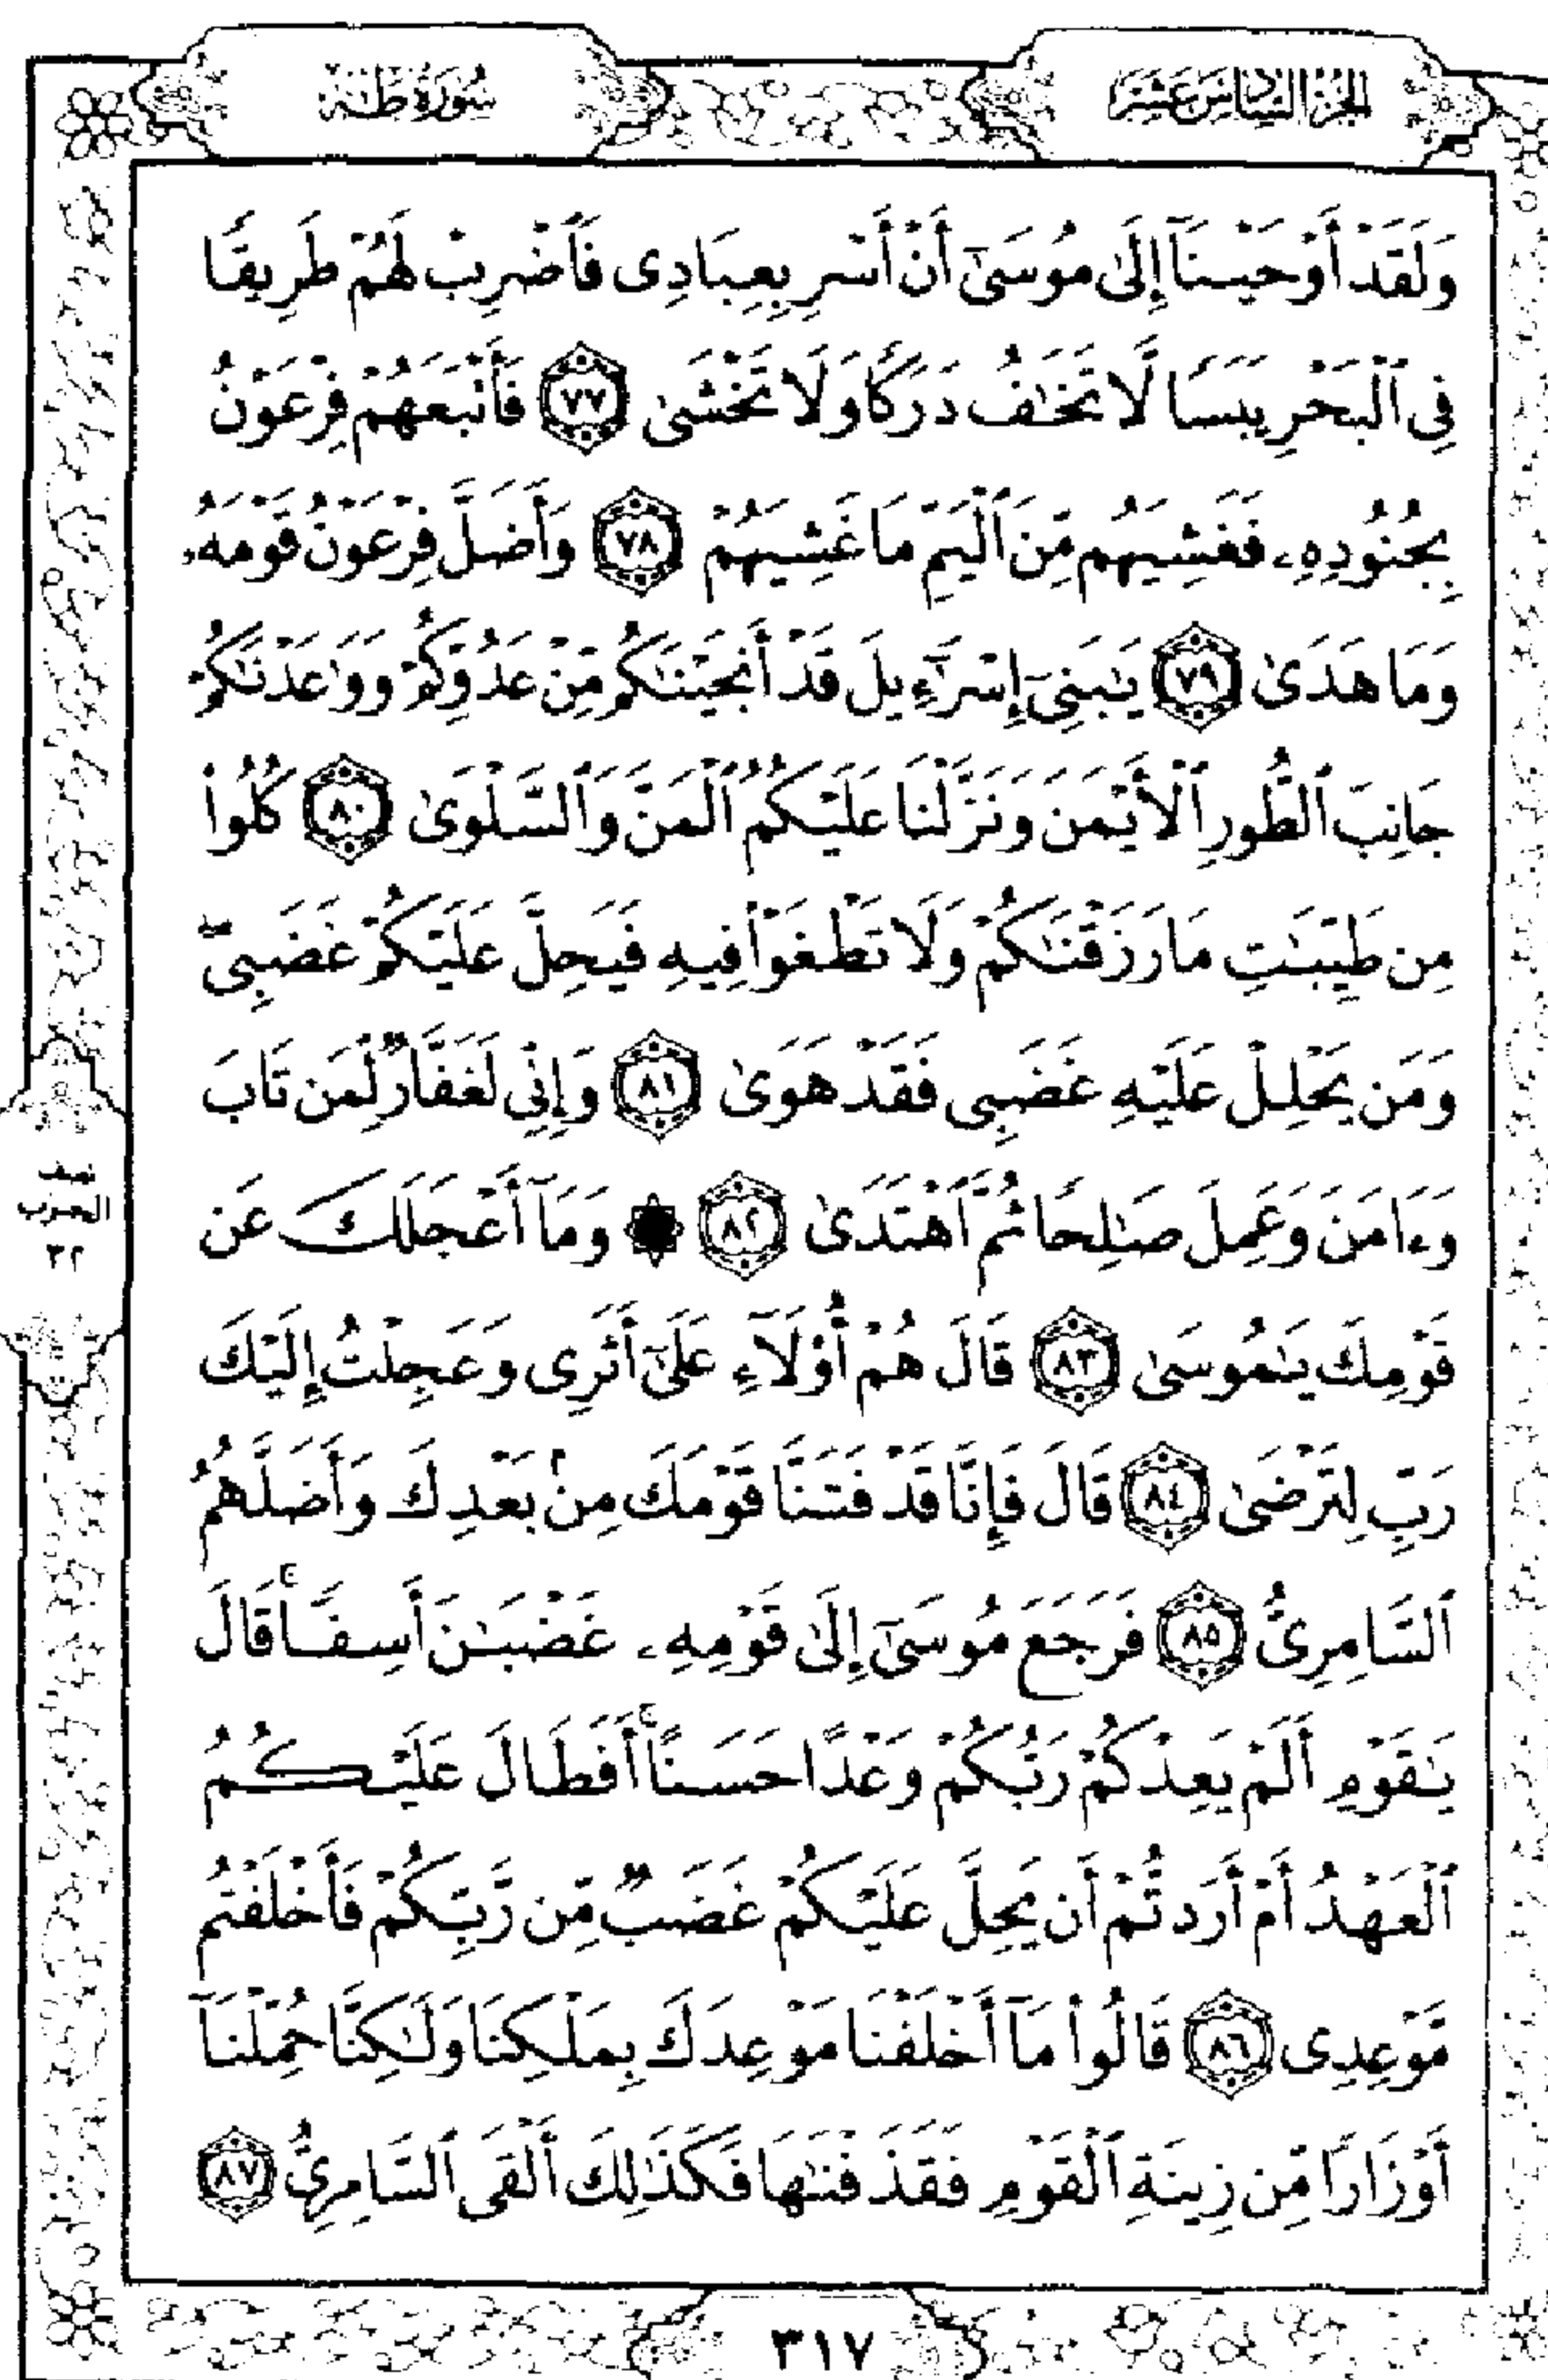 الجزء السادس عشر
سورة طه
وَلَقَدْ أَوْحَيْنَآ إِلَىٰ مُوسَىٰٓ أَنْ أَسْرِ بِعِبَادِى فَٱضْرِبْ لَهُمْ طَرِيقًا
فِى ٱلْبَحْرِ يَبَسًا لَّا تَخَٰفُ دَرَكًا وَلَا تَخْشَىٰ ٧٧ فَأَتْبَعَهُمْ فِرْعَوْنُ
بِجُنُودِهِۦ فَغَشِيَهُم مِّنَ ٱلْيَمِّ مَا غَشِيَهُمْ ٧٨ وَأَضَلَّ فِرْعَوْنُ قَوْمَهُۥ
وَمَا هَدَىٰ ٧٩ يَٰبَنِىٓ إِسْرَٰٓءِيلَ قَدْ أَنجَيْنَٰكُم مِّنْ عَدُوِّكُمْ وَوَٰعَدْنَٰكُمْ
جَانِبَ ٱلطُّورِ ٱلْأَيْمَنَ وَنَزَّلْنَا عَلَيْكُمُ ٱلْمَنَّ وَٱلسَّلْوَىٰ ٨٠ كُلُوا۟
مِن طَيِّبَٰتِ مَا رَزَقْنَٰكُمْ وَلَا تَطْغَوْا۟ فِيهِ فَيَحِلَّ عَلَيْكُمْ غَضَبِىۖ
وَمَن يَحْلِلْ عَلَيْهِ غَضَبِى فَقَدْ هَوَىٰ ٨١ وَإِنِّى لَغَفَّارٌ لِّمَن تَابَ
وَءَامَنَ وَعَمِلَ صَٰلِحًا ثُمَّ ٱهْتَدَىٰ ٨٢ ۞ وَمَآ أَعْجَلَكَ عَن
قَوْمِكَ يَٰمُوسَىٰ ٨٣ قَالَ هُمْ أُو۟لَآءِ عَلَىٰٓ أَثَرِى وَعَجِلْتُ إِلَيْكَ
رَبِّ لِتَرْضَىٰ ٨٤ قَالَ فَإِنَّا قَدْ فَتَنَّا قَوْمَكَ مِنۢ بَعْدِكَ وَأَضَلَّهُمُ
ٱلسَّامِرِىُّ ٨٥ فَرَجَعَ مُوسَىٰٓ إِلَىٰ قَوْمِهِۦ غَضْبَٰنَ أَسِفًاۚ قَالَ
يَٰقَوْمِ أَلَمْ يَعِدْكُمْ رَبُّكُمْ وَعْدًا حَسَنًاۚ أَفَطَالَ عَلَيْكُمُ
ٱلْعَهْدُ أَمْ أَرَدتُّمْ أَن يَحِلَّ عَلَيْكُمْ غَضَبٌ مِّن رَّبِّكُمْ فَأَخْلَفْتُم
مَّوْعِدِى ٨٦ قَالُوا۟ مَآ أَخْلَفْنَا مَوْعِدَكَ بِمَلْكِنَا وَلَٰكِنَّا حُمِّلْنَآ
أَوْزَارًا مِّن زِينَةِ ٱلْقَوْمِ فَقَذَفْنَٰهَا فَكَذَٰلِكَ أَلْقَى ٱلسَّامِرِىُّ ٨٧
نصف
الحزب
٣٢
٣١٧